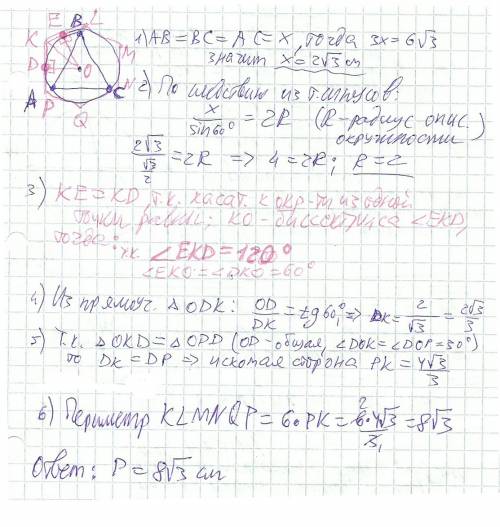 E B L
K
M
D
O
A
N
C
P
Q
1) AB = BC = AC = x, тогда 3x = 6√3
значит x = 2√3 см
2) По следствию из т. синусов:
x/sin60° = 2R (R - радиус опис. окружности)
2√3/(√3/2) = 2R => 4 = 2R; R = 2
3) KE = KD, т.к. касат. к окр-ти из одной
точки равны; KO - биссектриса ∠EKD,
тогда: т.к. ∠EKD = 120°
∠EKO = ∠DKO = 60°
4) Из прямоуг. △ODK: OD/DK = tg60° => DK = 2/√3 = 2√3/3
5) Т.к. △OKD = △OPD (OD - общая, ∠DOK = ∠DOP = 30°)
то DK = DP => искомая сторона PK = 4√3/3
6) Периметр KLMNQP = 6·PK = 6·4√3/3 = 8√3
2 1
Ответ: P = 8√3 см